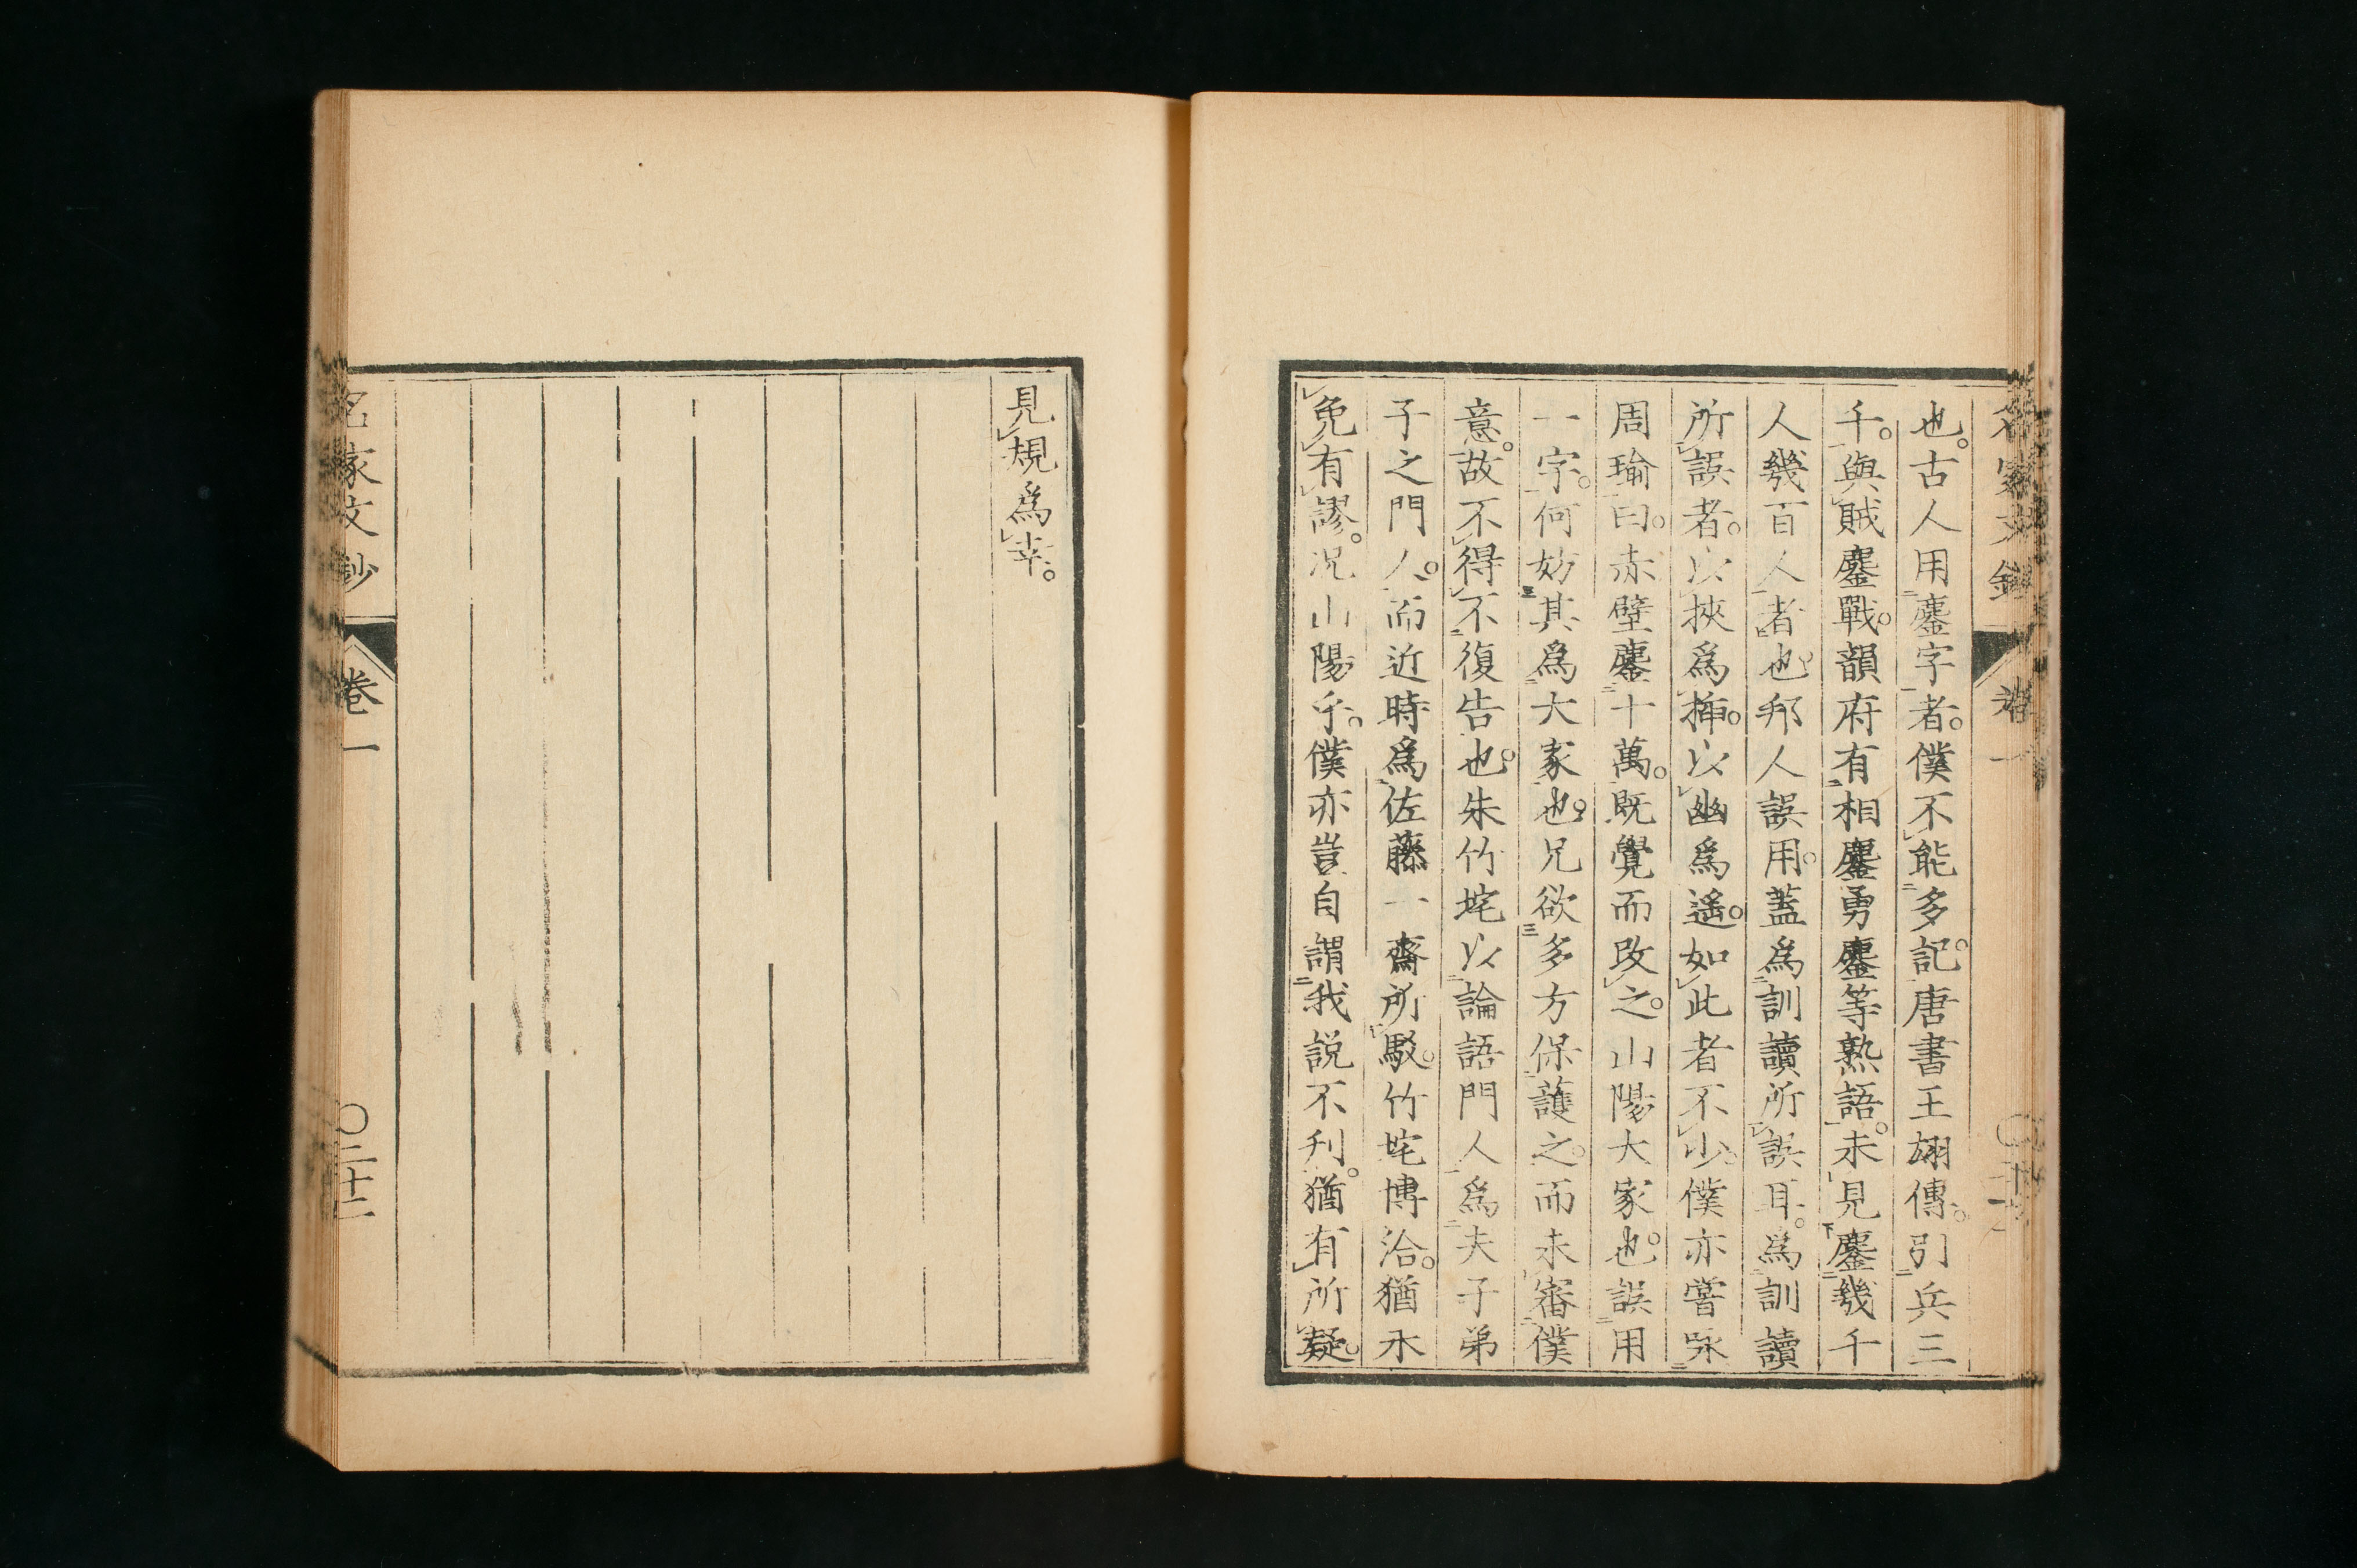 名家文鈔 卷一
也。古人用鏖字者。僕不能多記。唐書王翃傳。引兵三
千。與賊鏖戰。韻府有相鏖勇鏖等熟語。未見鏖幾千
人幾百人者也。邦人誤用。蓋爲訓讀所誤耳。爲訓讀
所誤者。以挾爲挿。以幽爲遙。如此者不少。僕亦嘗咏
周瑜曰。赤壁鏖十萬。既覺而改之。山陽大家也。誤用
一字。何妨其爲大家也。兄欲多方保護之。而未審僕
意。故不得不復告也。朱竹垞以論語門人爲夫子弟
子之門人。而近時爲佐藤一齋所駁。竹垞博洽。猶不
免有謬。況山陽乎。僕亦豈自謂我說不刋。猶有所疑。
見規爲幸。
名家文鈔 卷一 〇二十二